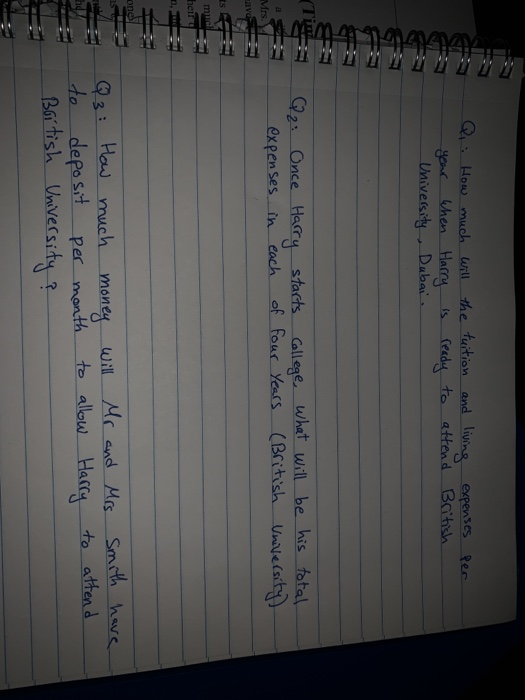 Q1: How much will the tuition and living expenses per
year when Harry is ready to attend British
University, Dubai.
Q2: Once Harry starts college, what will be his total
expenses in each of four years (British University)
Q3: How much money will Mr and Mrs Smith have
to deposit per month to allow Harry to attend
British University?